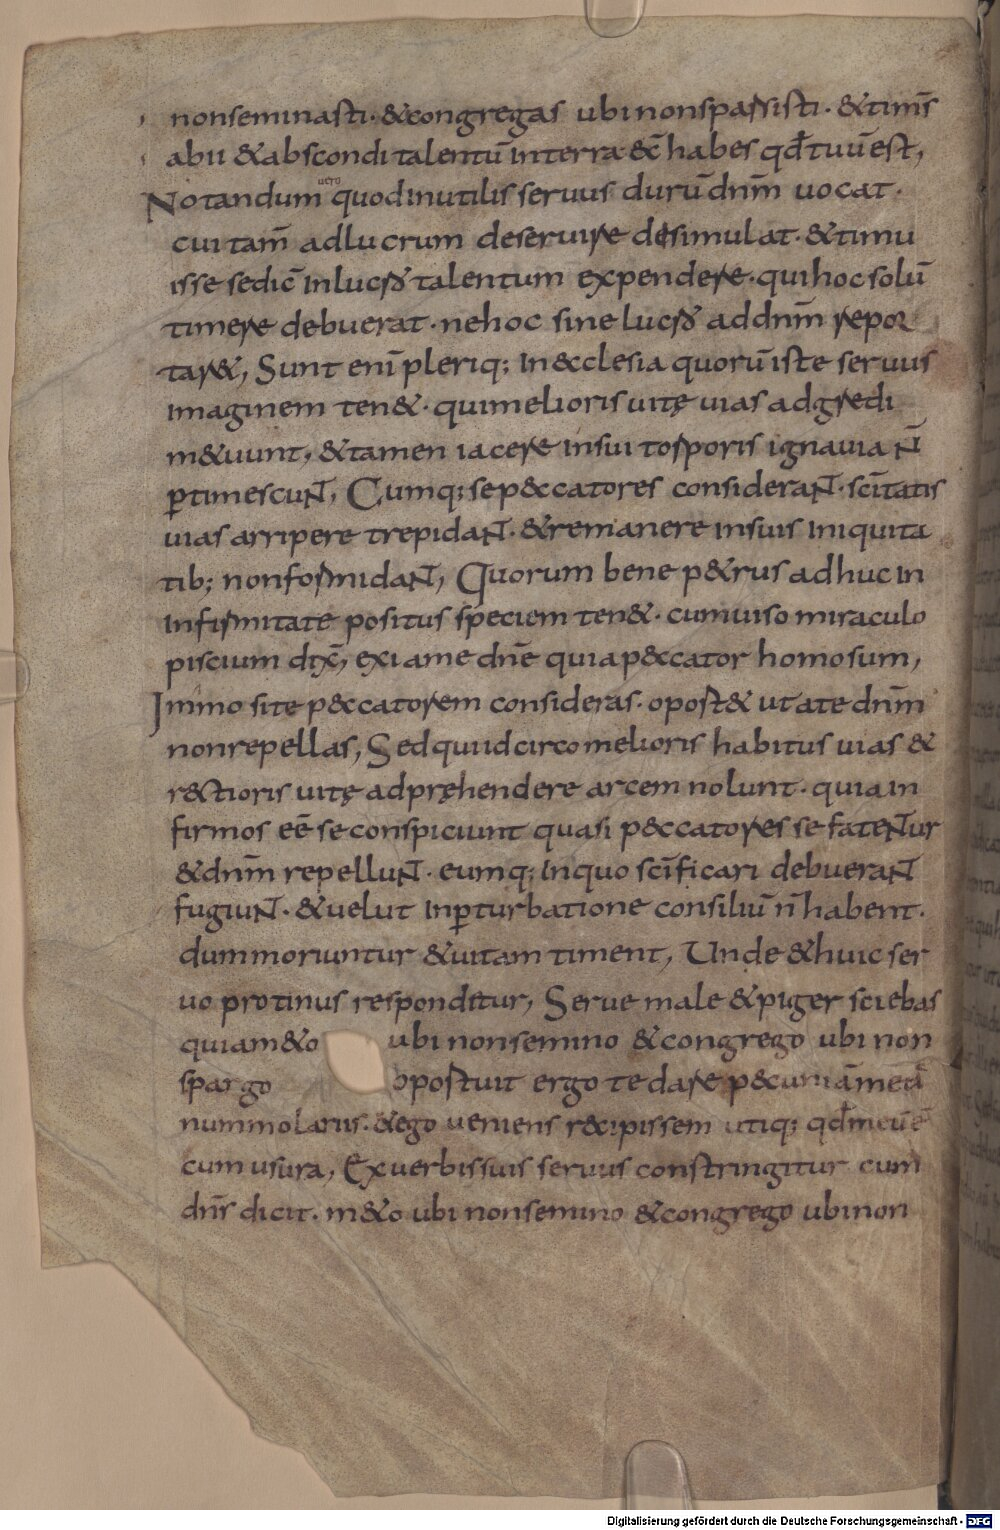 non seminasti· & congregas ubi non sparsisti· & timēs
abii & abscondi talentū in terra ec̄ habes qđ tuū est,
Notandum uero quod inutilis seruus durū dn̄m uocat·
cui tam̄ ad lucrum deseruire desimulat· & timu
isse se dic̄ in lucrū talentum expendere· qui hoc solū
timere debuerat· ne hoc sine lucrū ad dn̄m repor
tar&, Sunt eni̅ pleriq; in &cclesia quorū iste seruus
imaginem ten&· qui melioris uitę uias adgredi
m&uunt, & tamen iacere in sui torporis ignauia n̄
ꝑtimescunt, Cumq; se p&ccatores considerant· sc̄itatis
uias arripere trepidant· & remanere in suis iniquita
tib; non formidant, Quorum bene p&rus adhuc in
infirmitate positus speciem ten&· cum uiso miraculo
piscium dix̄, exi a me dn̄e quia p&ccator homo sum,
Immo si te p&ccatorem consideras· oport& ut a te dn̄m
non repellas, Sed qui idcirco melioris habitus uias &
r&ctioris uitę adpręhendere arcem nolunt· quia in
firmos eē se conspiciunt quasi p&ccatores se fatentur
& dn̄m repellunt· eumq; in quo sc̄ificari debuerant
fugiunt· & uelut in ꝑturbatione consiliū n̄ habent·
dum moriuntur & uitam timent, Unde & huic ser
uo protinus respondetur, Serue male & piger sciebas
quia m&o ubi non semino & congrego ubi non
spargo oportuit ergo te dare p&cuniā meā
nummolariis· & ego ueniens r&cipissem utiq; qđ meū ē
cum usura, Ex uerbis suis seruus constringitur cum
dn̄s dicit· m&o ubi non semino & congrego ubi non
Digitalisierung gefördert durch die Deutsche Forschungsgemeinschaft - DFG